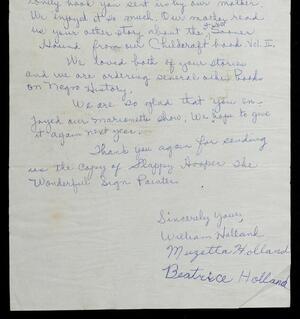 lovely book you sent us by our mother.
We enjoyed it so much. Our mother read
us your other story about the Fast Sooner
Hound from our Childcraft books Vol. II.
We loved both of your stories
and we are ordering several other books
on Negro History.
We are so glad that you en-
joyed our Marionette Show. We hope to give
it again next year.
Thank you again for sending
us the Copy of Slappy Hooper The
Wonderful Sign Painter
Sincerely Yours,
William Holland
Muzetta Holland
Beatrice Holland